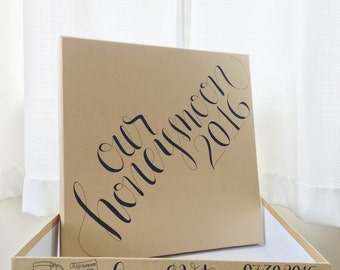 our
honeymoon
2016
07.30.2016